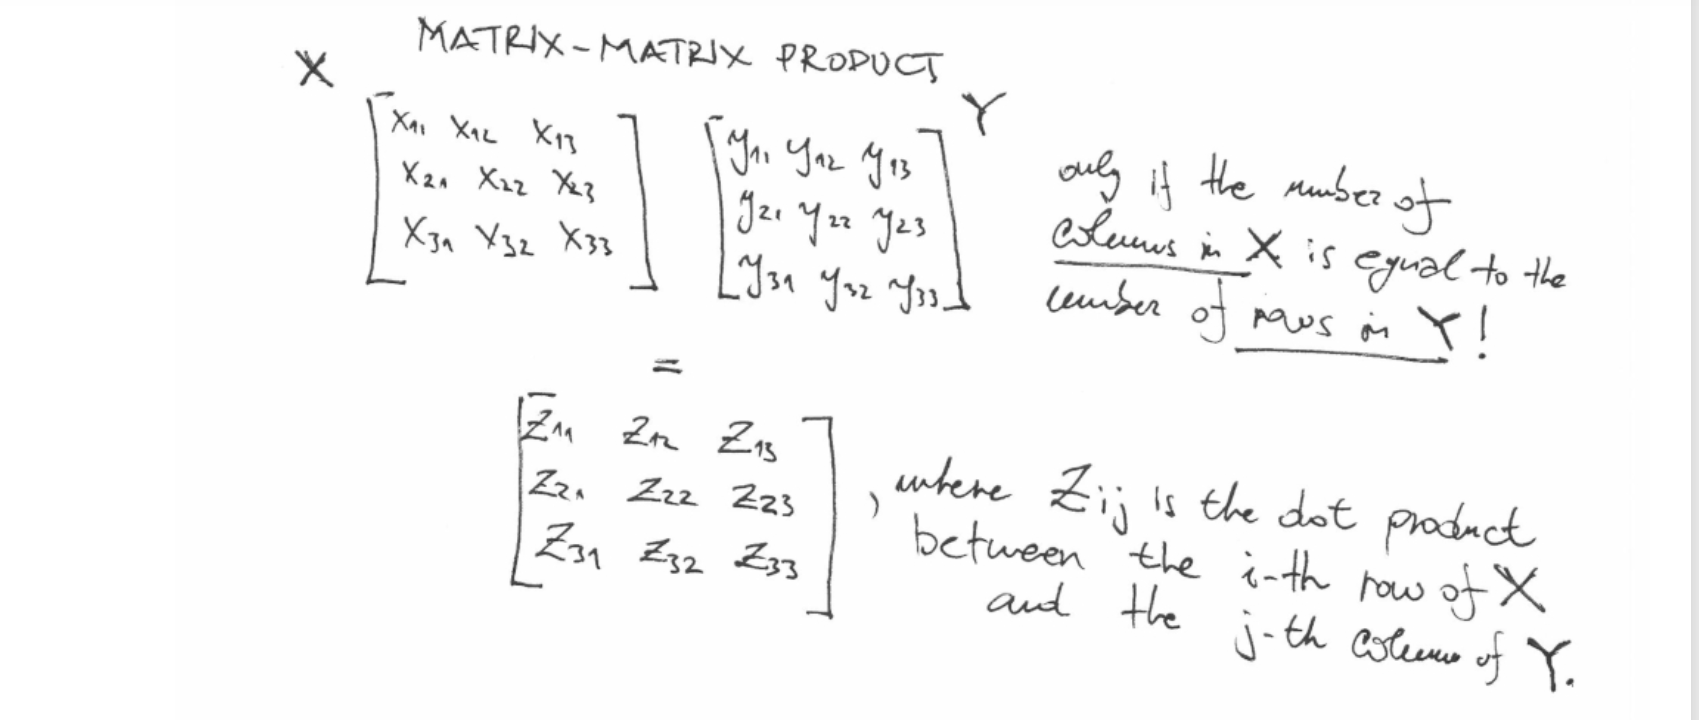 MATRIX-MATRIX PRODUCT
X
Y
x11 x12 x13
x21 x22 x23
x31 x32 x33
y11 y12 y13
y21 y22 y23
y31 y32 y33
only if the number of
columns in X is equal to the
number of rows in Y!
=
z11 z12 z13
z21 z22 z23
z31 z32 z33
, where Zij is the dot product
between the i-th row of X
and the j-th column of Y.